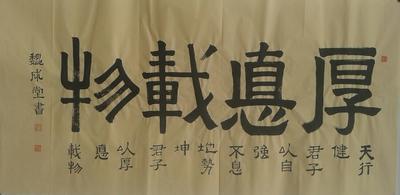 厚悳載物
天行
健
君子
以自
強
不息
地勢
坤
君子
以厚
悳
載物
魏成堂書